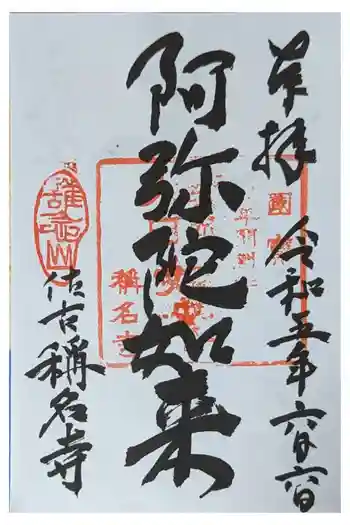 奉拝
令和五年六月六日
阿弥陀如来
稱名寺
雄志山
佐古稱名寺